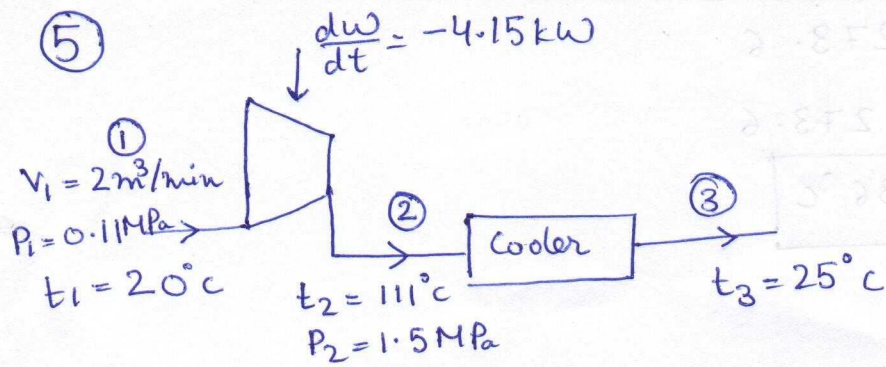 ⑤
dw/dt = -4.15kW
①
V₁ = 2m³/min
P₁ = 0.11MPa
t₁ = 20°c
②
t₂ = 111°c
P₂ = 1.5MPa
Cooler
③
t₃ = 25°c